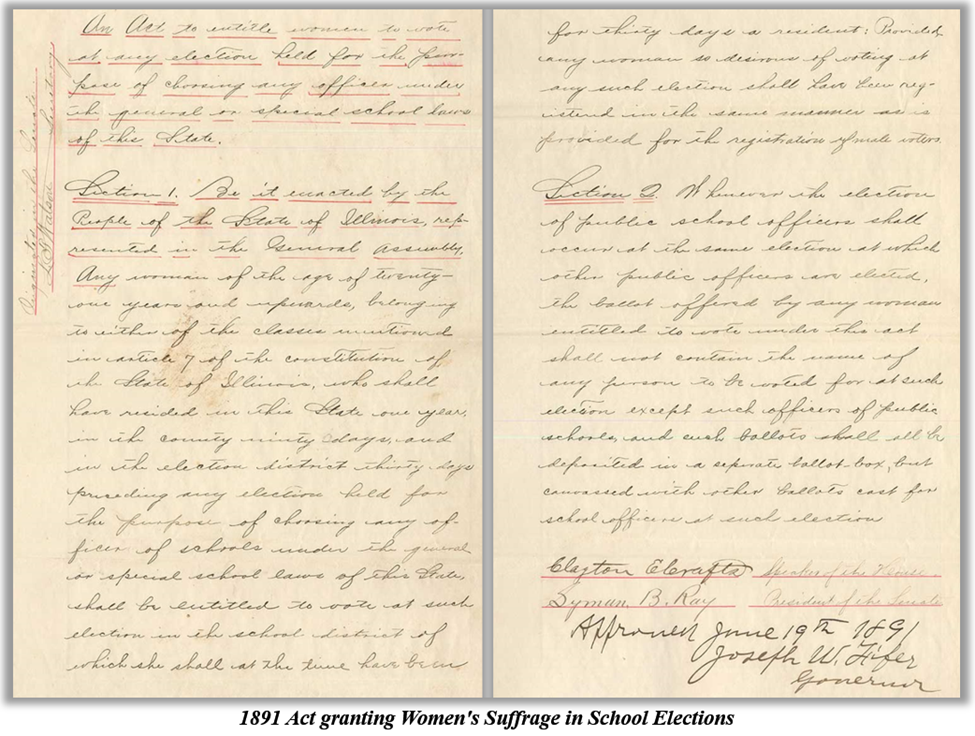 An Act to entitle women to vote
at any election held for the pur-
pose of choosing any officer under
the general or special school laws
of this State.
Section 1. Be it enacted by the
People of the State of Illinois, rep-
resented in the General Assembly,
Any woman of the age of twenty-
one years and upwards, belonging
to either of the classes mentioned
in article 7 of the constitution of
the State of Illinois, who shall
have resided in this State one year,
in the county ninety days, and
in the election district thirty days
preceding any election held for
the purpose of choosing any of-
ficer of schools under the general
or special school laws of this State,
shall be entitled to vote at such
election in the school district of
which she shall at the time have been
Originated in the Senate
Watson Secretary
for thirty days a resident: Provided,
any woman so desirous of voting at
any such election shall have been reg-
istered in the same manner as is
provided for the registration of male voters.
Section 2. Whenever the election
of public school officers shall
occur at the same election at which
other public officers are elected,
the ballot offered by any woman
entitled to vote under this act
shall not contain the name of
any person to be voted for at such
election except such officers of public
schools, and such ballots shall all be
deposited in a seperate ballot-box, but
canvassed with other ballots cast for
school officers at such election
Clayton E Crafts Speaker of the House.
Lyman B. Ray President of the Senate
Approved June 19th 1891
Joseph W. Fifer
Governor
1891 Act granting Women's Suffrage in School Elections